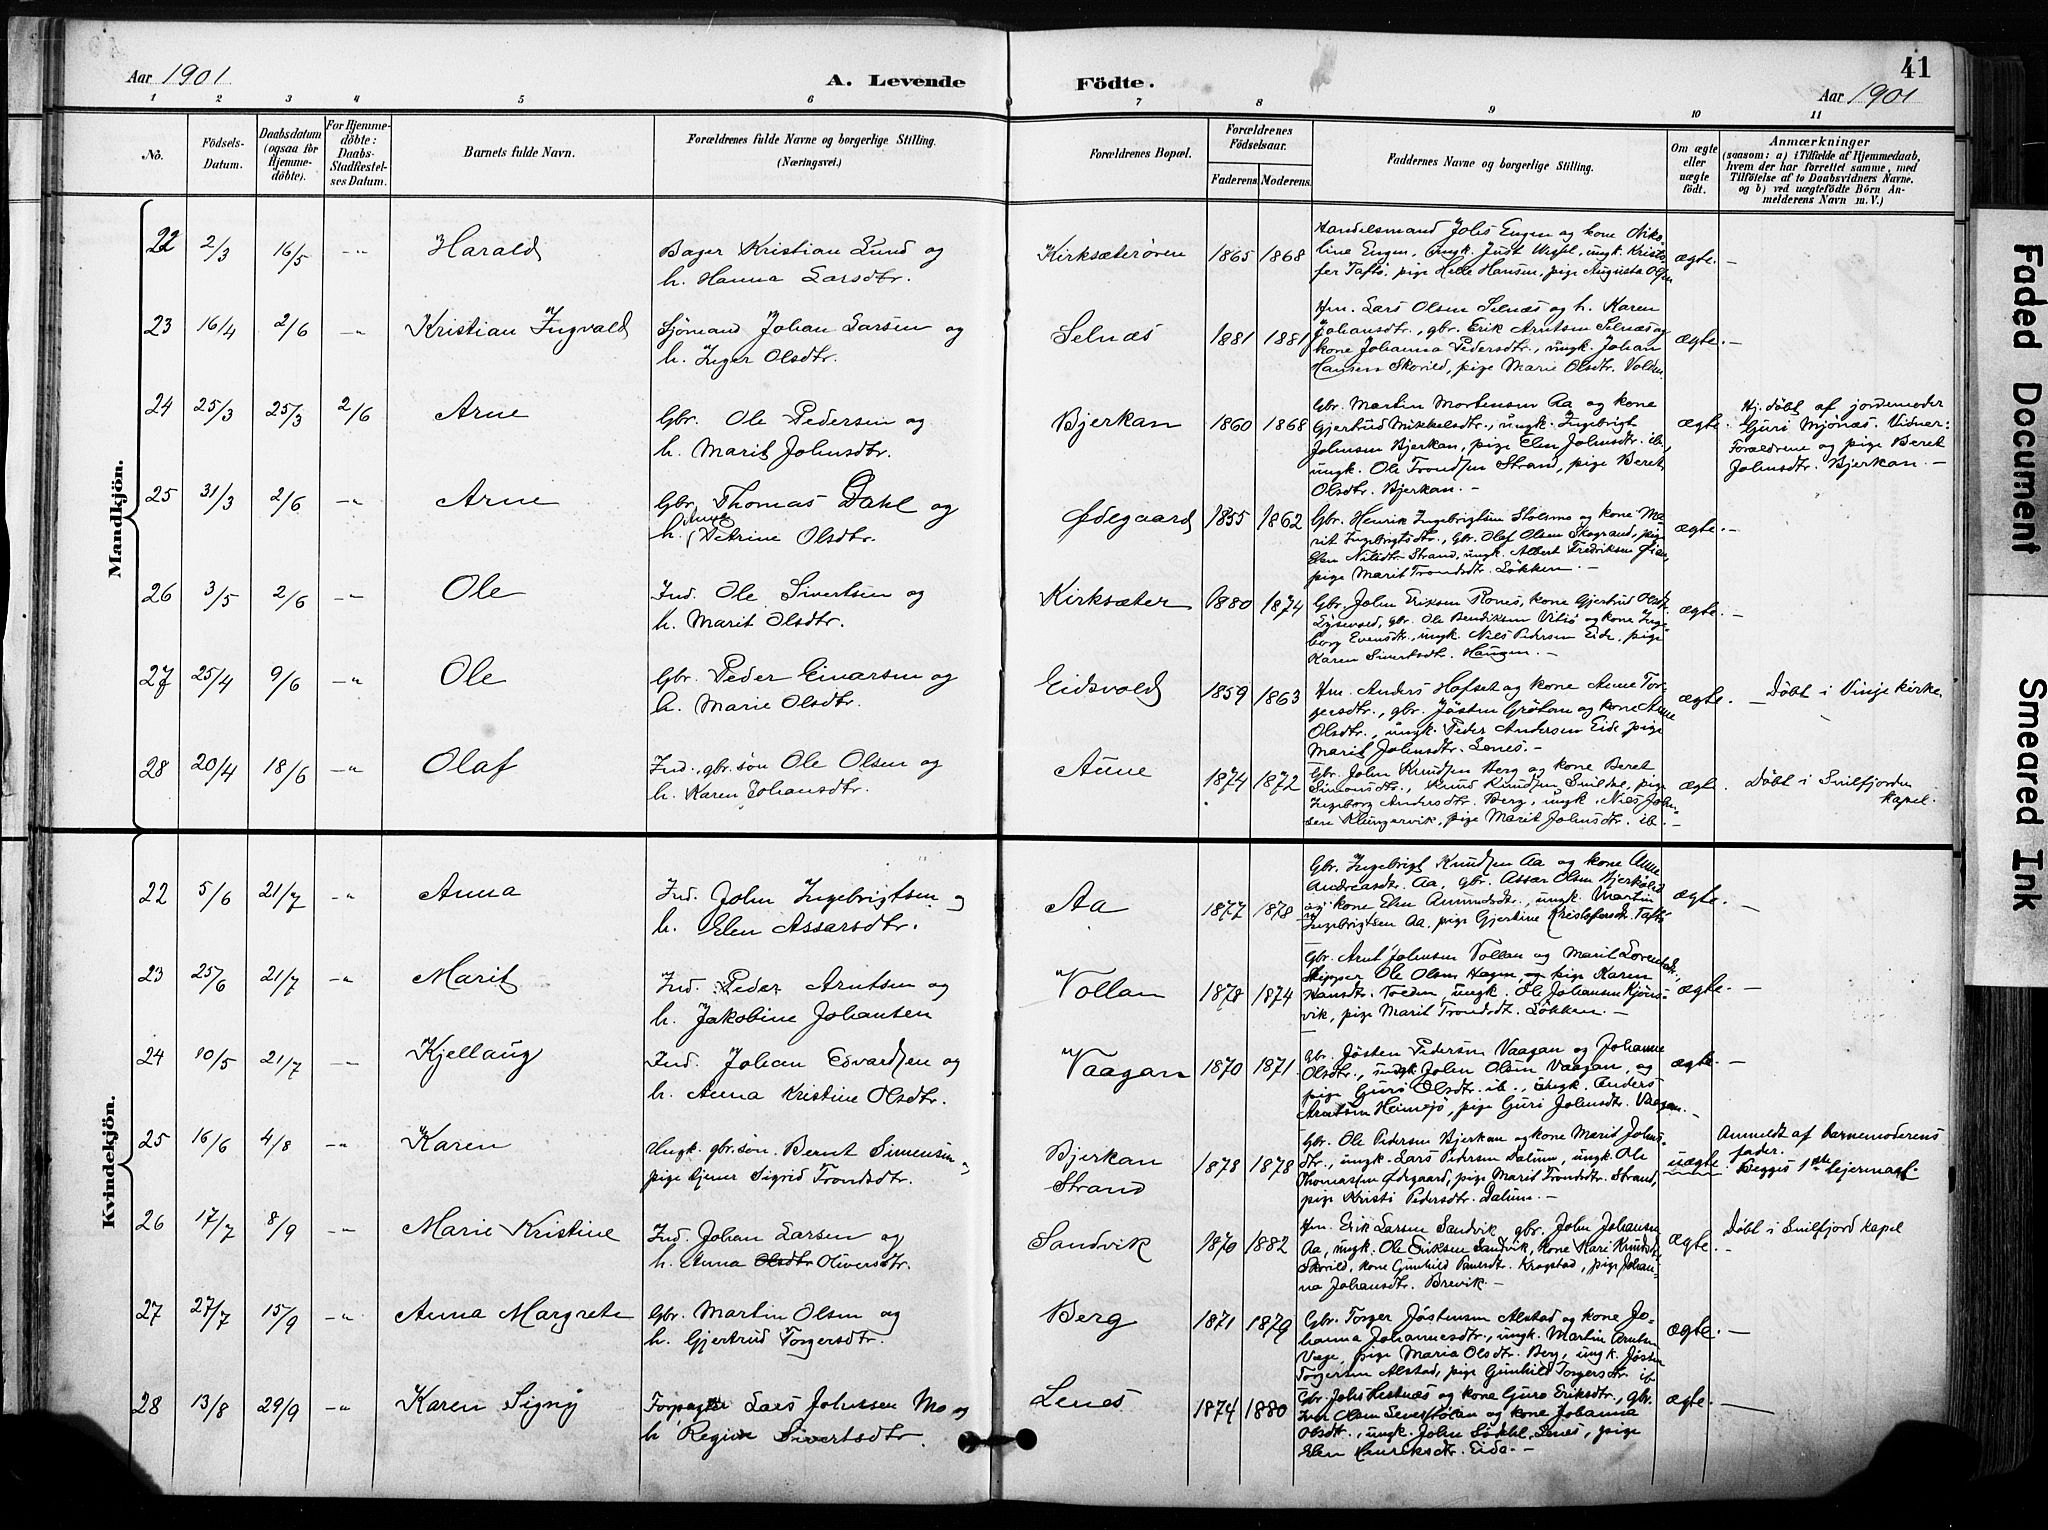 41
Aar 1901
A. Levende
Födte.
Aar 1901
1 2 3 4 5 6 7 8 9 10 11
No.
Födsels-Datum.
Daabsdatum (ogsaa for Hjemme-döbte).
For Hjemme-döbte: Daabs-Stadfæstel-ses Datum.
Barnets fulde Navn.
Forældrenes fulde Navne og borgerlige Stilling. (Næringsvei.)
Forældrenes Bopæl.
Forældrenes Födselsaar.
Faderens. Moderens.
Faddernes Navne og borgerlige Stilling.
Om ægte eller uægte födt.
Anmærkninger
(saasom: a) i Tilfælde af Hjemmedaab,
hvem der har forrettet samme, med
Tilföielse af to Daabsvidners Navne.
og b) ved uægtefödte Börn An-
melderens Navn m. V.)
Mandkjön.
22 2/3 16/5 -"- Harald
Bager Kristian Lund og
h. Hanna Larsdtr.
Kirksæterøren 1865 1868
Handelsmand Johs Engen og kone Nik-
line Engen, ungk. Just Wessel, ungk. Kristo-
fer Taftö, pige Helle Hansen, pige Augusta Olsen
ægte. —
23 16/4 2/6 -"- Kristian Ingvald
Sjömand Johan Larsen og
h. Inger Olsdtr.
Selnæs 1881 1881
Hm. Lars Olsen Selnæs og h. Karen
Johansdtr., gbr. Erik Arntsen Selnæs og
kone Johanna Pedersdtr., ungk. Johan
Hansen Skorild, pige Marie Olsdtr. Volden.
ægte. —
24 25/3 25/3 2/6 Arne
Gbr. Ole Pedersen og
h. Marit Johnsdtr.
Bjerkan 1860 1868
Gbr. Martin Mortensen Aa og kone
Gjertrud Mikkelsdtr., ungk. Ingebrigt
Johnsen Bjerkan, pige Elen Johnsdtr. ib.
ungk. Ole Trondsen Strand, pige Beret
Olsdtr. Bjerkan. —
ægte.
Hj. döbt af jordemoder
Guri Mjönes. Vidner:
Forældrene og pige Beret
Johnsdtr. Bjerkan. —
25 31/3 2/6 -"- Arne
Gbr. Thomas Dahl og
h. Anne Petrine Olsdtr.
Ødegaard 1855 1862
Gbr. Henrik Ingebrigtsen Stolsmo og kone Ma-
rit Ingebrigtsdtr., gbr. Olaf Olsen Skogrand, pige
Elen Nilsdtr. Strand, ungk. Albert Fredriksen Øian,
pige Marit Trondsdtr. Løkken. —
ægte. —
26 3/5 2/6 -"- Ole
Ind. Ole Sivertsen og
h. Marit Olsdtr.
Kirksæter 1880 1874
Gbr. John Eriksen Rones, kone Gjertrud Olsdtr.
gbr. Ole Bendiksen Vitsö og kone Inge-
borg Evensdtr., ungk. Niels Pedersen Eide, pige
Karen Sivertsdtr. Haugen. —
ægte. —
27 25/4 9/6 -"- Ole
Gbr. Peder Einarsen og
h. Marie Olsdtr.
Eidsvold 1859 1863
Hm. Anders Hafset og kone Anne Tor-
gersdtr., gbr. Jösten Gröthem og kone Anne
Olsdtr., ungk. Peder Andersen Eide, pige
Marit Johnsdtr. Lenes. —
ægte.
Döbt i Vinje kirke.
28 20/4 18/6 -"- Olaf
Ind., gbr. sön Ole Olsen og
h. Karen Johansdtr.
Aune 1874 1872
Gbr. John Knudsen Berg og kone Beret
Simonsdtr., Knud Knudsen Snildal, pige
Ingeborg Andersdtr. Berg, ungk. Niels John-
sen Klungervik, pige Marit Johnsdtr. ib. —
ægte.
Döbt i Snilfjorden
kapel.
Kvindekjön.
22 5/6 21/7 -"- Anna
Ind. John Ingebrigtsen og
h. Elen Assarsdtr.
Aa 1877 1878
Gbr. Ingebrigt Knudsen Aa og kone Anne
Andreasdtr. Aa, gbr. Assar Olsen Bjerkölid
og kone Elen Amundsdtr., ungk. Martin
Ingebrigtsen Aa, pige Gjertine Kristofersdtr. Taftö
ægte. —
23 25/6 21/7 -"- Marit
Ind. Peder Arntsen og
h. Jakobine Johansen
Vollan 1878 1874
Gbr. Arnt Johnsen Vollan og Marit Lorentsdtr.,
Skipper Ole Olsen Hagen og pige Karen
Hansdtr. Volden, ungk. Ole Johansen Kjöns-
vik, pige Marit Trondsdtr. Løkken. —
ægte. —
24 10/5 21/7 -"- Kjellaug
Ind. Johan Edvardsen og
h. Anna Kristine Olsdtr.
Vaagan 1870 1871
Gbr. Jösten Pedersen Vaagan og Johanne
Olsdtr., ungk. John Olsen Vaagan, og
pige Guri Olsdtr. ib., ungk. Anders
Arntsen Heimsjö, pige Guri Johnsdtr. Vaagan. —
ægte. —
25 16/6 4/8 -"- Karen
Ungk. gbr. sön. Bernt Simensen og
pige tjener Sigrid Trondsdtr.
Bjerkan
Strand
1878 1878
Gbr. Ole Pedersen Bjerkan og kone Marit Johns-
dtr., ungk. Lars Pedersen Dalum, ungk. Ole
Thomassen Ødegaard, pige Marit Trondsdtr. Strand,
pige Kristi Pedersdtr. Dalum. —
uægte.
Anmeldt af Barnemoderens
fader.
Begges 1ste leiermaal.
26 17/7 8/9 -"- Marie Kristine
Ind. Johan Larsen og
h. Anna Olsdtr Oliversdtr.
Sandvik 1870 1882
Hm. Erik Larsen Sandvik, gbr. John Johansen
Aa, ungk. Ole Eriksen Sandvik, kone Kari Knudsdtr.
Skorild, kone Gunhild Krogstad, pige Johan-
na Johansdtr. Brevik. —
ægte.
Döbt i Snilfjord kapel
27 27/7 15/9 -"- Anna Margrete
Gbr. Martin Olsen og
h. Gjertrud Torgersdtr.
Berg 1871 1879
Gbr. Torger Jöstensen Alstad og kone Jo-
hanna Johannesdtr., ungk. Martin Arntsen
Vage, pige Maria Olsdtr. Berg, ungk. Jösten
Torgersen Alstad, pige Gunhild Torgersdtr. ib
ægte. —
28 13/8 29/9 -"- Karen Signy
Forpagter Lars Johnsen Mo og
h. Regine Sivertsdtr.
Lenes 1874 1880
Gbr. Johs Hestnæs og kone Guro Eriksdtr., gbr.
Iver Olsen og kone Johanna
Olsdtr., ungk. John Lenes, pige
Elen Henriksdtr. Eide. —
ægte. —
Faded Document
Smeared Ink